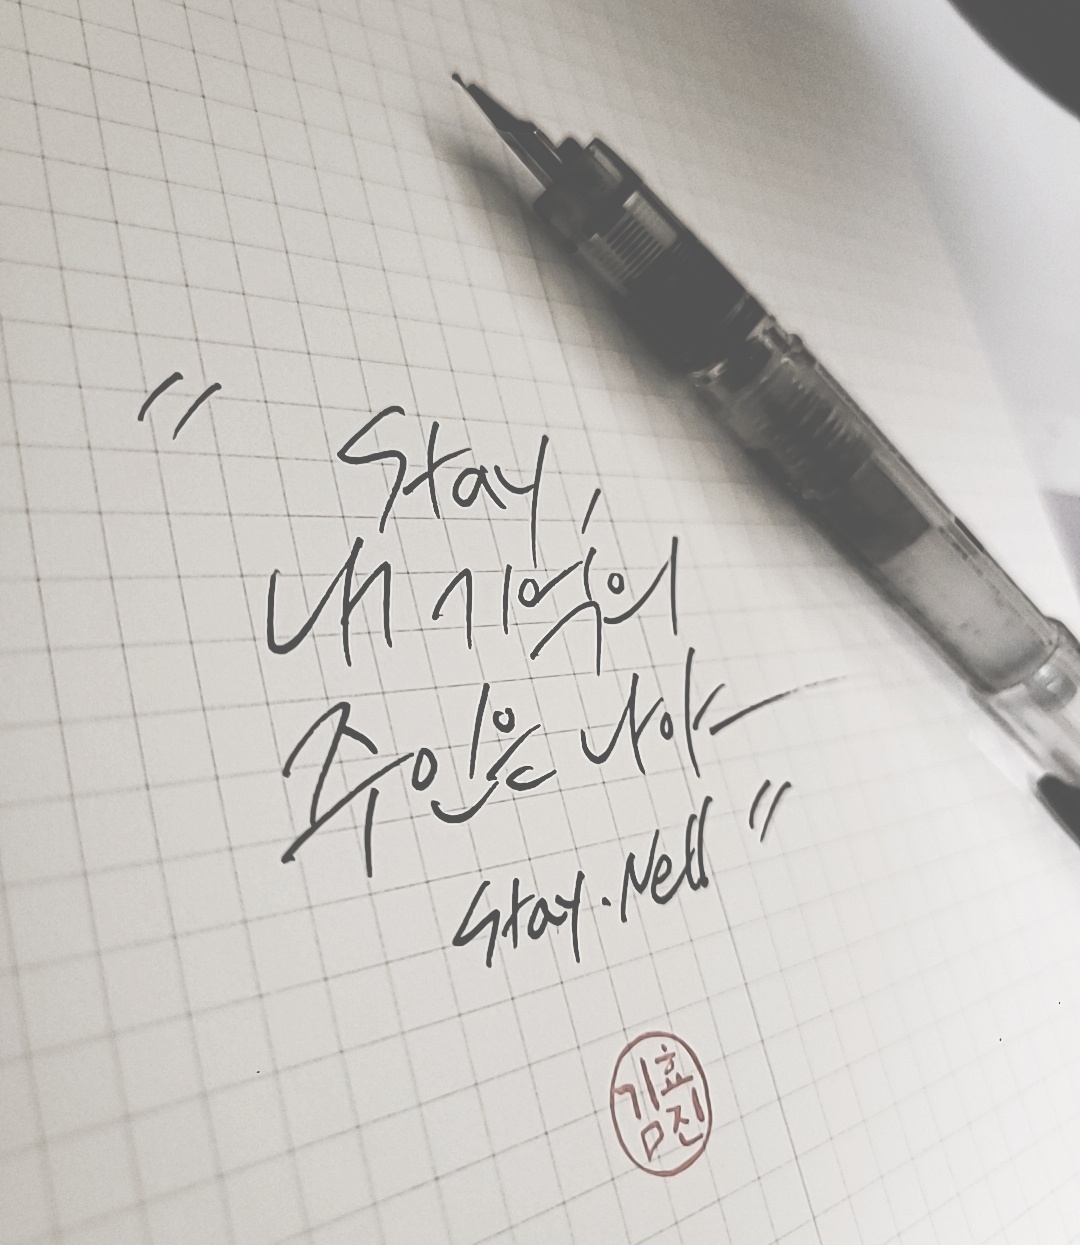 "Stay,
내 기억의
주인은 나야
Stay. Nell"
김효진